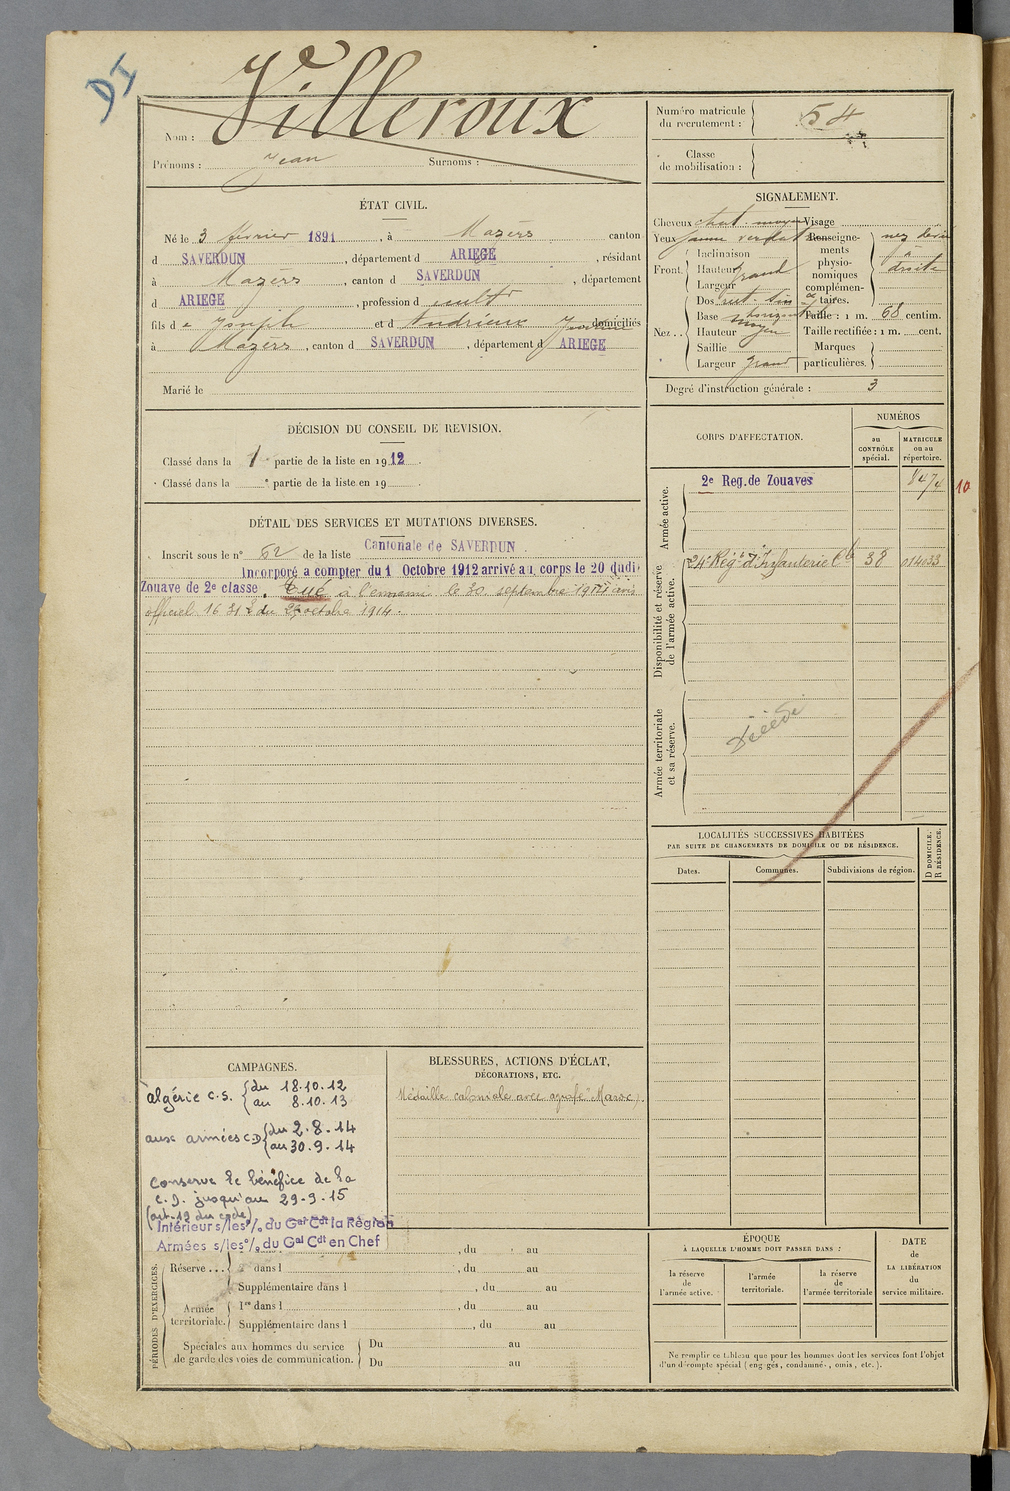 DI
Nom : Villeroux
Prénoms : Jean Surnoms :
Numéro matricule
du recrutement : 54
Classe
de mobilisation :
ÉTAT CIVIL.
Né le 3 février 1891, à Mazères canton
d SAVERDUN, département d ARIEGE, résidant
à Mazères, canton d SAVERDUN, département
d ARIEGE, profession d cultr
fils de Joseph et d Andrieux domiciliés
à Mazères, canton d SAVERDUN, département d ARIEGE
Marié le
SIGNALEMENT.
Cheveux chat. moyen Visage
Yeux jaune
Front. Inclinaison
Hauteur grand
Largeur
Nez .. Dos rect. sin
Base horizont
Hauteur moyen
Saillie
Largeur grand
Renseigne-
ments
physio-
nomiques
complémen-
taires. nez dévié
à
droite
Taille : 1 m. 68 centim.
Taille rectifiée : 1 m. cent.
Marques
particulières.
Degré d'instruction générale : 3
DÉCISION DU CONSEIL DE REVISION.
Classé dans la 1 partie de la liste en 1912.
Classé dans la e partie de la liste en 19
CORPS D'AFFECTATION.
NUMÉROS
au
CONTRÔLE
spécial.
MATRICULE
ou au
répertoire.
Armée active.
2e Reg. de Zouaves 8474 10
Disponibilité et réserve
de l'armée active.
24e Régt d'Infanterie Cle 38 014033
Armée territoriale
et sa réserve.
Décédé
DÉTAIL DES SERVICES ET MUTATIONS DIVERSES.
Inscrit sous le n° 62 de la liste Cantonale de SAVERDUN
Incorporé a compter du 1 Octobre 1912 arrivé au corps le 20 dudit
Zouave de 2e classe. Tué à l'ennemi le 30 septembre 1914 avis
officiel 16312 du 29 octobre 1914.
LOCALITÉS SUCCESSIVES HABITÉES
PAR SUITE DE CHANGEMENTS DE DOMICILE OU DE RÉSIDENCE.
Dates. Communes. Subdivisions de région. D DOMICILE. R RÉSIDENCE.
CAMPAGNES.
Algérie c.s. du 18.10.12
au 8.10.13
aux armées C.D du 2.8.14
au 30.9.14
Conserve le bénéfice de la
C.D. jusqu'au 29-9-15
(art-19 du code)
Intérieur s/les % du Gal Cdt la Région
Armées s/les % du Gal Cdt en Chef
BLESSURES, ACTIONS D'ÉCLAT,
DÉCORATIONS, ETC.
Médaille coloniale avec agrafe "Maroc".
PÉRIODES D'EXERCICES.
, du au
Réserve ... 2e dans l , du au
Supplémentaire dans l , du au
Armée
territoriale. 1re dans l , du au
Supplémentaire dans l , du au
Spéciales aux hommes du service
de garde des voies de communication. Du au
Du au
ÉPOQUE
À LAQUELLE L'HOMME DOIT PASSER DANS :
la réserve
de
l'armée active.
l'armée
territoriale.
la réserve
de
l'armée territoriale
DATE
de
LA LIBÉRATION
du
service militaire.
Ne remplir ce tableau que pour les hommes dont les services font l'objet
d'un décompte spécial (engagés, condamnés, omis, etc.).